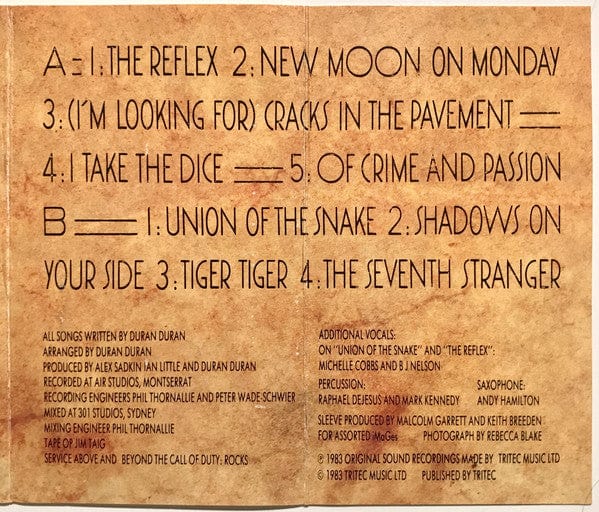 A = 1: THE REFLEX 2: NEW MOON ON MONDAY
3: (I'M LOOKING FOR) CRACKS IN THE PAVEMENT
4: I TAKE THE DICE 5: OF CRIME AND PASSION
B 1: UNION OF THE SNAKE 2: SHADOWS ON
YOUR SIDE 3: TIGER TIGER 4: THE SEVENTH STRANGER
ALL SONGS WRITTEN BY DURAN DURAN
ARRANGED BY DURAN DURAN
PRODUCED BY ALEX SADKIN IAN LITTLE AND DURAN DURAN
RECORDED AT AIR STUDIOS, MONTSERRAT
RECORDING ENGINEERS PHIL THORNALLIE AND PETER WADE-SCHWIER
MIXED AT 301 STUDIOS, SYDNEY
MIXING ENGINEER PHIL THORNALLIE
TAPE OP JIM TAIG
SERVICE ABOVE AND BEYOND THE CALL OF DUTY: ROCKS
ADDITIONAL VOCALS:
ON "UNION OF THE SNAKE" AND "THE REFLEX":
MICHELLE COBBS AND B J NELSON
PERCUSSION: SAXOPHONE:
RAPHAEL DEJESUS AND MARK KENNEDY ANDY HAMILTON
SLEEVE PRODUCED BY MALCOLM GARRETT AND KEITH BREEDEN
FOR ASSORTED iMaGes PHOTOGRAPH BY REBECCA BLAKE
℗ 1983 ORIGINAL SOUND RECORDINGS MADE BY TRITEC MUSIC LTD
© 1983 TRITEC MUSIC LTD PUBLISHED BY TRITEC